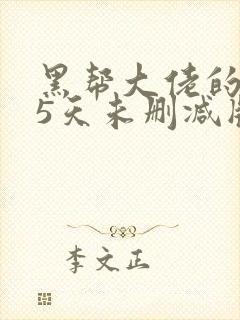 黑帮大佬的
5天未删减版
李文正